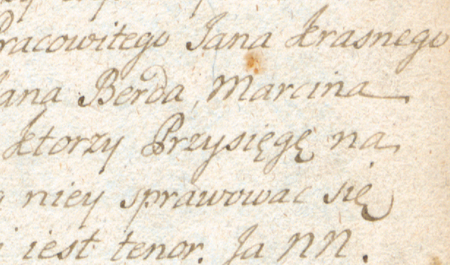 Pracowitego Jana Krasnego
Jana Berda, Marcina
ktorzy Przysięgę na
niey sprawować się
i iest tenor. Ja NN.